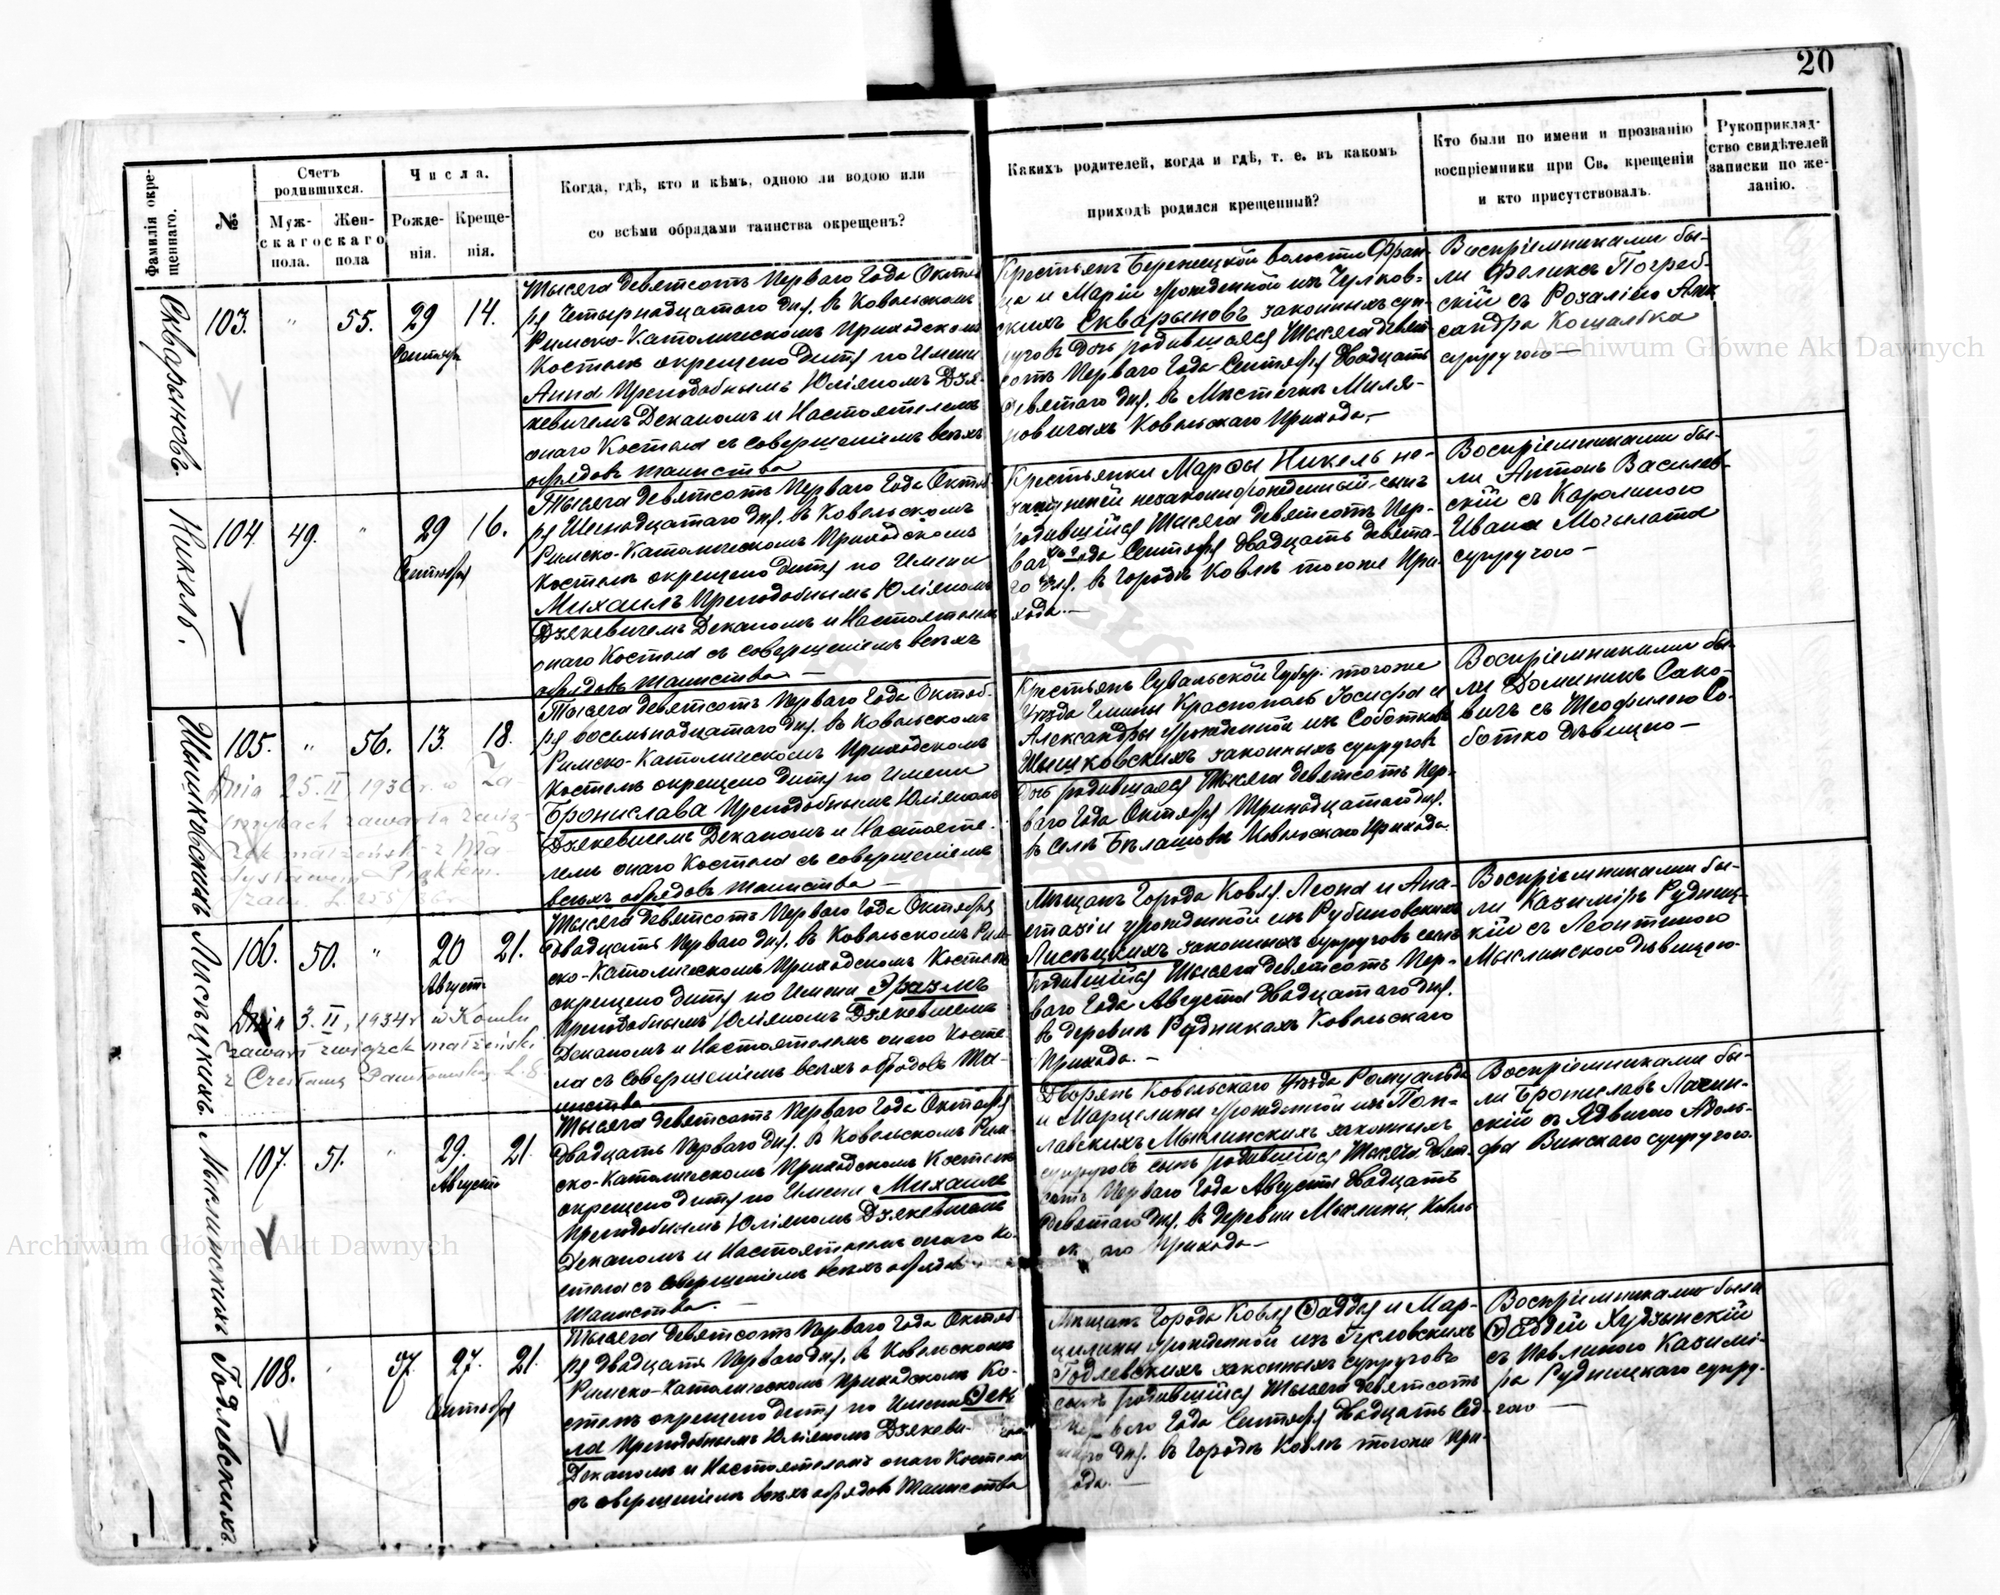 20
Фамилія окре-
щеннаго.
№
Счетъ
родившихся.
Муж-
скаго
пола.
Жен-
скаго
пола
Числа.
Рожде-
нія.
Креще-
нія.
Когда, гдѣ, кто и кѣмъ, одною ли водою или
со всѣми обрядами таинства окрещенъ?
Какихъ родителей, когда и гдѣ, т. е. въ какомъ
приходѣ родился крещенный?
Кто были по имени и прозванію
воспріемники при Св. крещеніи
и кто присутствовалъ.
Рукоприклад-
ство свидѣтелей
записки по же-
ланію.
Скварыновъ.
103.
"
55.
29
Сентября
14.
Тысяча девятсотъ Перваго Года Октяб
ря Четырнадцатого дня въ Ковельскомъ
Римско-Католическомъ Приходскомъ
Костелѣ окрещено дитя по Имени
Анна Преподобнымъ Юліяномъ Дзя-
кевичемъ Деканомъ и Настоятелемъ
онаго Костела съ совершеніемъ всѣхъ
обрядовъ таинства
Крестьянъ Бережецкой волости Фран-
ца и Маріи урожденной изъ Чулков-
скихъ Скварыновъ законныхъ суп-
руговъ дочь родившаяся Тысяча девят
сотъ Перваго Года Сентября двадцать
девятаго дня въ Мѣстечкѣ Миля-
новичахъ Ковельскаго Прихода.—
Воспріемниками бы-
ли Феликсъ Погреб-
скій съ Розаліею
сандра Кошалька
супругою—
Никель.
104.
49.
"
29
Сентября
16.
Тысяча девятсотъ Перваго Года Октяб-
ря Шестнадцатого дня въ Ковельскомъ
Римско-Католическомъ Приходскомъ
Костелѣ окрещено дитя по Имени
Михаилъ Преподобнымъ Юліяномъ
Дзякевичемъ Деканомъ и Настоятелемъ
онаго Костела съ совершеніемъ всѣхъ
обрядовъ таинства —
Крестьянки Марфы Никель не-
замужней незаконнорожденный сынъ
родившійся Тысяча девятсотъ Пер-
ваго Года Сентября двадцать девята-
го дня въ городѣ Ковлѣ тогоже При
хода.—
Воспріемниками бы-
ли Антонъ Василев-
скій съ Каролиною
Ивана Могылата
супругою—
Шышковскихъ
105.
"
56.
13.
18.
Dnia 25.II.1936 r. w Za-
turzynach
zawarła zwią-
zek małżeński z Wła-
dysławem
L. 255/36 r
Тысяча девятсотъ Перваго Года Октяб-
ря восемьнадцатого дня въ Ковельскомъ
Римско-Католическомъ Приходскомъ
Костелѣ окрещено дитя по Имени
Бронислава Преподобнымъ Юліяномъ
Дзякевичемъ Деканомъ и Настояте-
лемъ онаго Костела съ совершеніемъ
всѣхъ обрядовъ таинства —
Крестьянъ Сувальской Губер. тогоже
Уѣзда Гмины Краснополь Іосифа и
Александры урожденной изъ Соботковъ
Шышковскихъ законныхъ супруговъ
дочь родившаяся Тысяча девятсотъ Пер-
ваго Года Октября Тринадцатого дня
въ Селѣ Бѣлашовѣ Ковельскаго Прихода.
Воспріемниками бы-
ли Доминикъ Сако-
вичъ съ Теофилею Со-
ботко дѣвицею—
Лисѣцкихъ
106.
50.
"
20
Августа
21.
Dnia 3.II.1934 r w Kowlu
zawarł związek małżeński
z Czesławą Pawłowską L. 8
Тысяча девятсотъ Перваго Года Октября
двадцать Перваго дня въ Ковельскомъ Рим-
ско-Католическомъ Приходскомъ Костелѣ
окрещено дитя по Имени Эразмъ
Преподобнымъ Юліяномъ Дзякевичемъ
Деканомъ и Настоятелемъ онаго Косте
ла съ совершеніемъ всѣхъ обрядовъ Та-
инства
Мѣщанъ Города Ковля Леона и Ана-
стазіи урожденной изъ Рубиновскихъ
Лисѣцкихъ законныхъ супруговъ сынъ
родившійся Тысяча девятсотъ Пер-
ваго Года Августа двадцатого дня
въ деревнѣ Рудникахъ Ковельскаго
Прихода.—
Воспріемниками бы-
ли Казиміръ Рудниц-
кій съ Леонтиною
Мыслинского дѣвицею
Мыслинскихъ
107.
51.
"
29.
Августа
21.
Тысяча девятсотъ Перваго Года Октября
двадцать Перваго дня въ Ковельскомъ Рим-
ско-Католическомъ Приходскомъ Костелѣ
окрещено дитя по Имени Михаилъ
Преподобнымъ Юліяномъ Дзякевичемъ
Деканомъ и Настоятелемъ онаго Ко-
стела съ совершеніемъ всѣхъ обрядовъ
Таинства.—
Дворянъ Ковельскаго Уѣзда Ромуальда
и Марцелины урожденной изъ Поп-
лавскихъ Мыслинскихъ законныхъ
супруговъ сынъ родившійся Тысяча девят-
сотъ Перваго Года Августа двадцать
девятаго дня въ деревни Мыслины Ковель
ск аго Прихода—
Воспріемниками бы-
ли Брониславъ Лачин-
скій съ Ядвигою Адоль-
фа Винскаго супругою.
Годлевскихъ.
108.
57.
27.
Сентября
21.
Тысяча девятсотъ Перваго Года Октяб-
ря двадцать Перваго дня въ Ковельскомъ
Римско-Католическомъ Приходскомъ Ко-
стелѣ окрещено дитя по Имени Ѳек
ла Преподобнымъ Юліяномъ Дзякеви-
Деканомъ и Настоятелемъ онаго Костела
съ совершеніемъ всѣхъ обрядовъ Таинства
Мѣщанъ Города Ковля Ѳаддея и Мар-
цилины урожденной изъ Гукловскихъ
Годлевскихъ законныхъ супруговъ
сынъ родившійся Тысяча девятсотъ
Перваго Года Сентября двадцать сед-
маго дня въ городѣ Ковлѣ тогоже При-
хода.—
Воспріемниками были
Ѳаддей Худзынскій
съ Павлиною Казимі-
ра Рудницкаго супру-
гою —
Archiwum Główne Akt Dawnych
Archiwum Główne Akt Dawnych